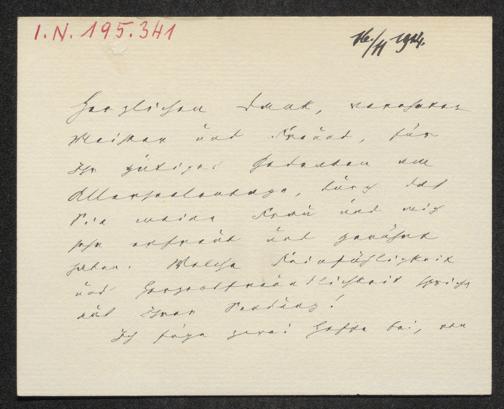 I.N. 195.341
16./11 1914.
Herzlichen Dank, verehrter
Meister und Freund, für
Ihr gütiges Gedenken am
Allerseelentage, durch das
Sie meine Frau und mich
sehr erfreut und gerührt
haben. Welche Feinfühligkeit
und Herzensfreundlichkeit spricht
aus Ihrer Sendung!
Ich füge zwei Hefte bei, von